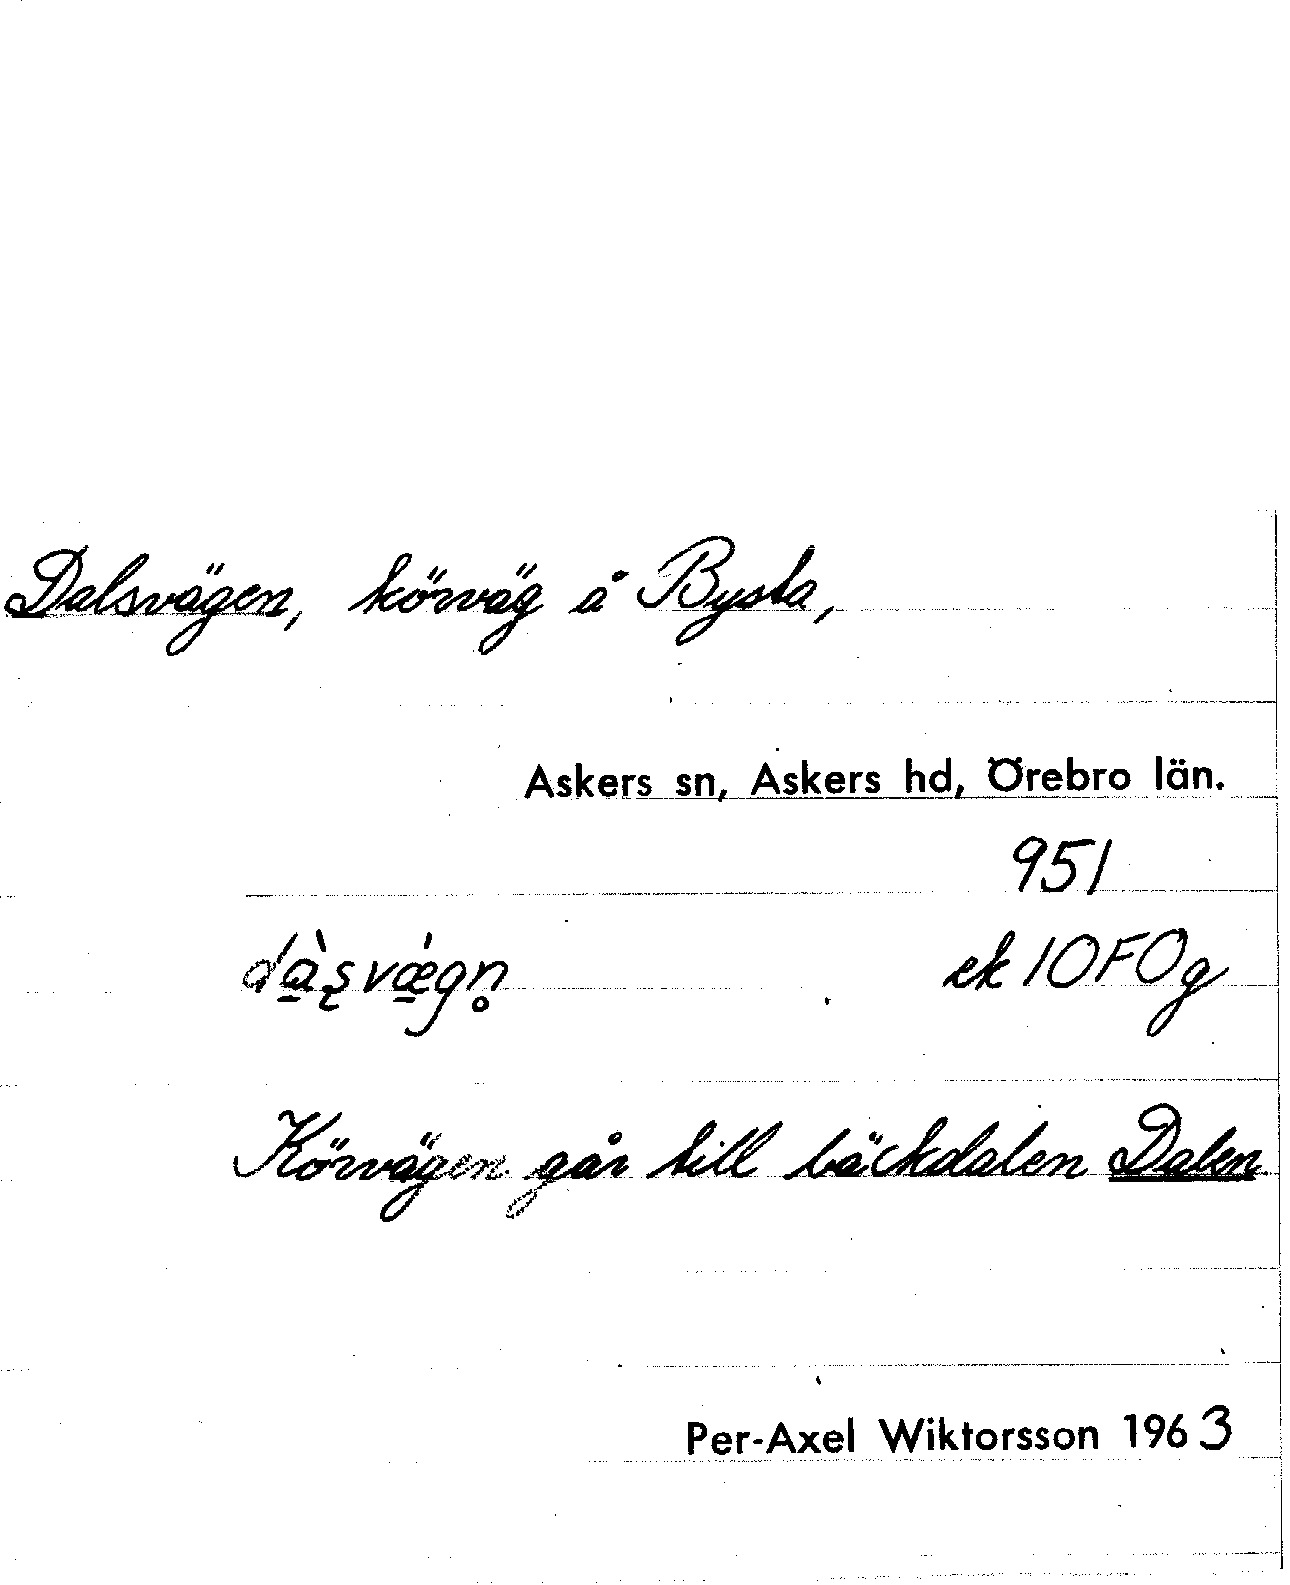 Dalsvägen, körväg å Bysta,
Askers sn, Askers hd, Örebro län.
951
dàs̨væ̀gn̥ ek 10F0g
Körvägen går till bäckdalen Dalen
Per-Axel Wiktorsson 1963